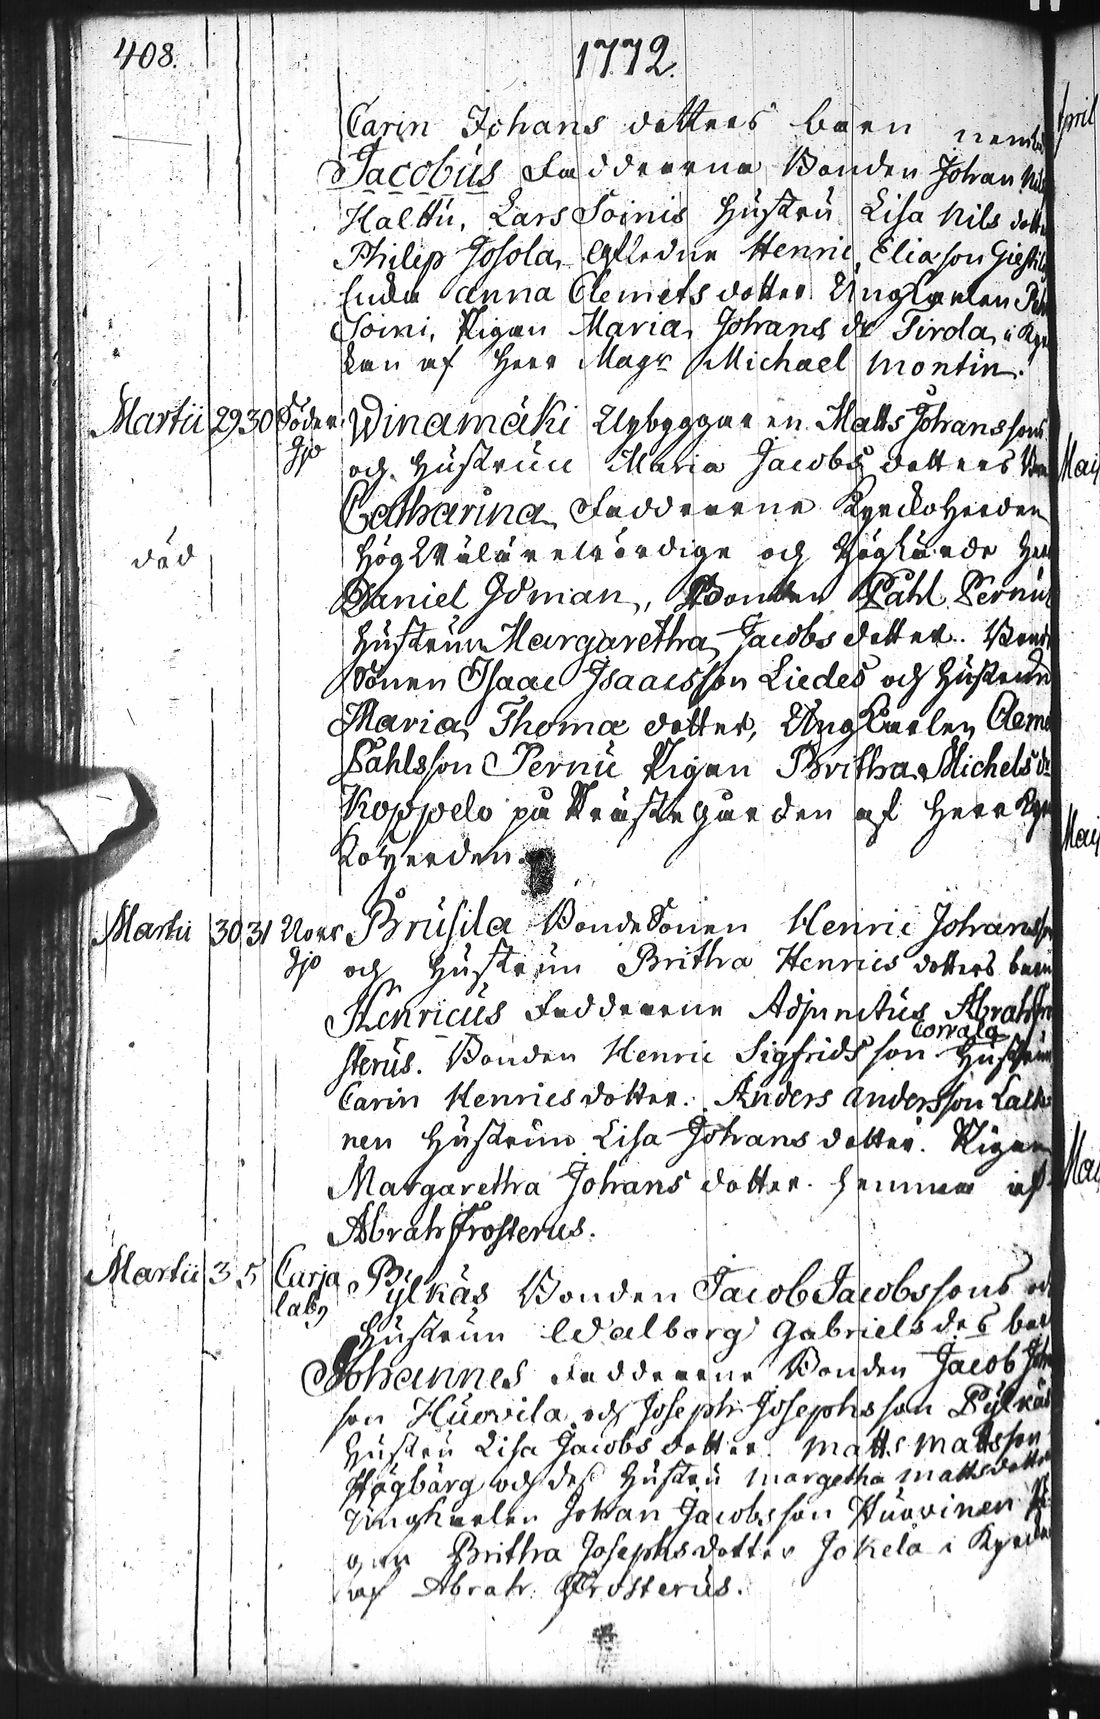 408.
1772.
Carin Johans dotters barn
Jacobus Faddrarne Bonden Johan
Halttu, Lars Soinis Hustru Lisa Nils
Philip Josola, Henric Eliasson
Enda Anna Clemets dotter Ungkarlen
Soini, Pigan Maria Johans dr Tirola, i
kan af Herr Magr Michael Montin.
Martii 29 30 Söder Winamäki Nybyggaren Matts Johanssons
sjö och Hustruns Maria Jacobs dotters
Catharina Faddrarne Kyrckoherden
död Högwälärewördige och Höglärde
Daniel Idman, Bonden Påhl
Hustrun Margaretha Jacobs dotter.
Sonen Isaac Isaacsson Liedes och Hustrun
Maria Thomæ dotter, Ungkarlen
Påhlsson Pernu Pigan Britha Michels dr
Koppelo på Prästegården af Herr
koherden.
Martii 30 31 Norr Brusila Bonde Sonen Henric
sjö och Hustrun Britha Henrics dotters barn
Henricus Faddrarne Adjunctus
sterus. Bonden Henric Sigfridsson Corvala Hustrun
Carin Henrics dotter. Anders Andersson
nen Hustrun Lisa Johans dotter. Pigan
Margaretha Johans dotter. hemma af
Abrah Frosterus.
Martii 3 5 Curja Pylkäs Bonden Jacob Jacobssons
laby Hustrun Walborg Gabriels des
Johannes Faddrarne Bonden Jacob
son Huovila och Joseph Josephsson
Hustru Lisa Jacobs dotter. Matts Mattsson
Högbärg och des Hustru Margetha Matts dotter
Ungkarlen Johan Jacobsson Huovinen
gan Britha Josephs dotter Jokela i
af Abrah. Frosterus.